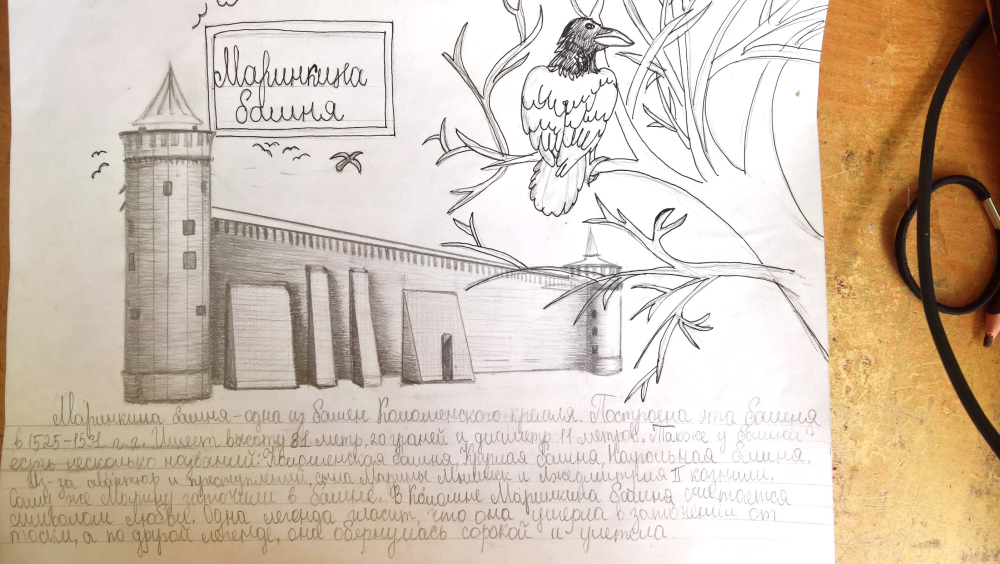 Маринкина
башня
Маринкина башня - одна из башен Коломенского кремля. Построена эта башня
в 1525-1531 г.г. Имеет высоту 31 метр, 20 граней и диаметр 11 метров. Также у башни
есть несколько названий: Коломенская башня, Круглая башня, Наугольная башня.
Из-за авантюр и преступлений, сына Марины Мнишек и Лжедмитрия II казнили.
Саму же Марину заточили в башне. В Коломне Маринкина башня считается
символом любви. Одна легенда гласит, что она умерла в заточении от
тоски, а по другой легенде, она обернулась сорокой и улетела